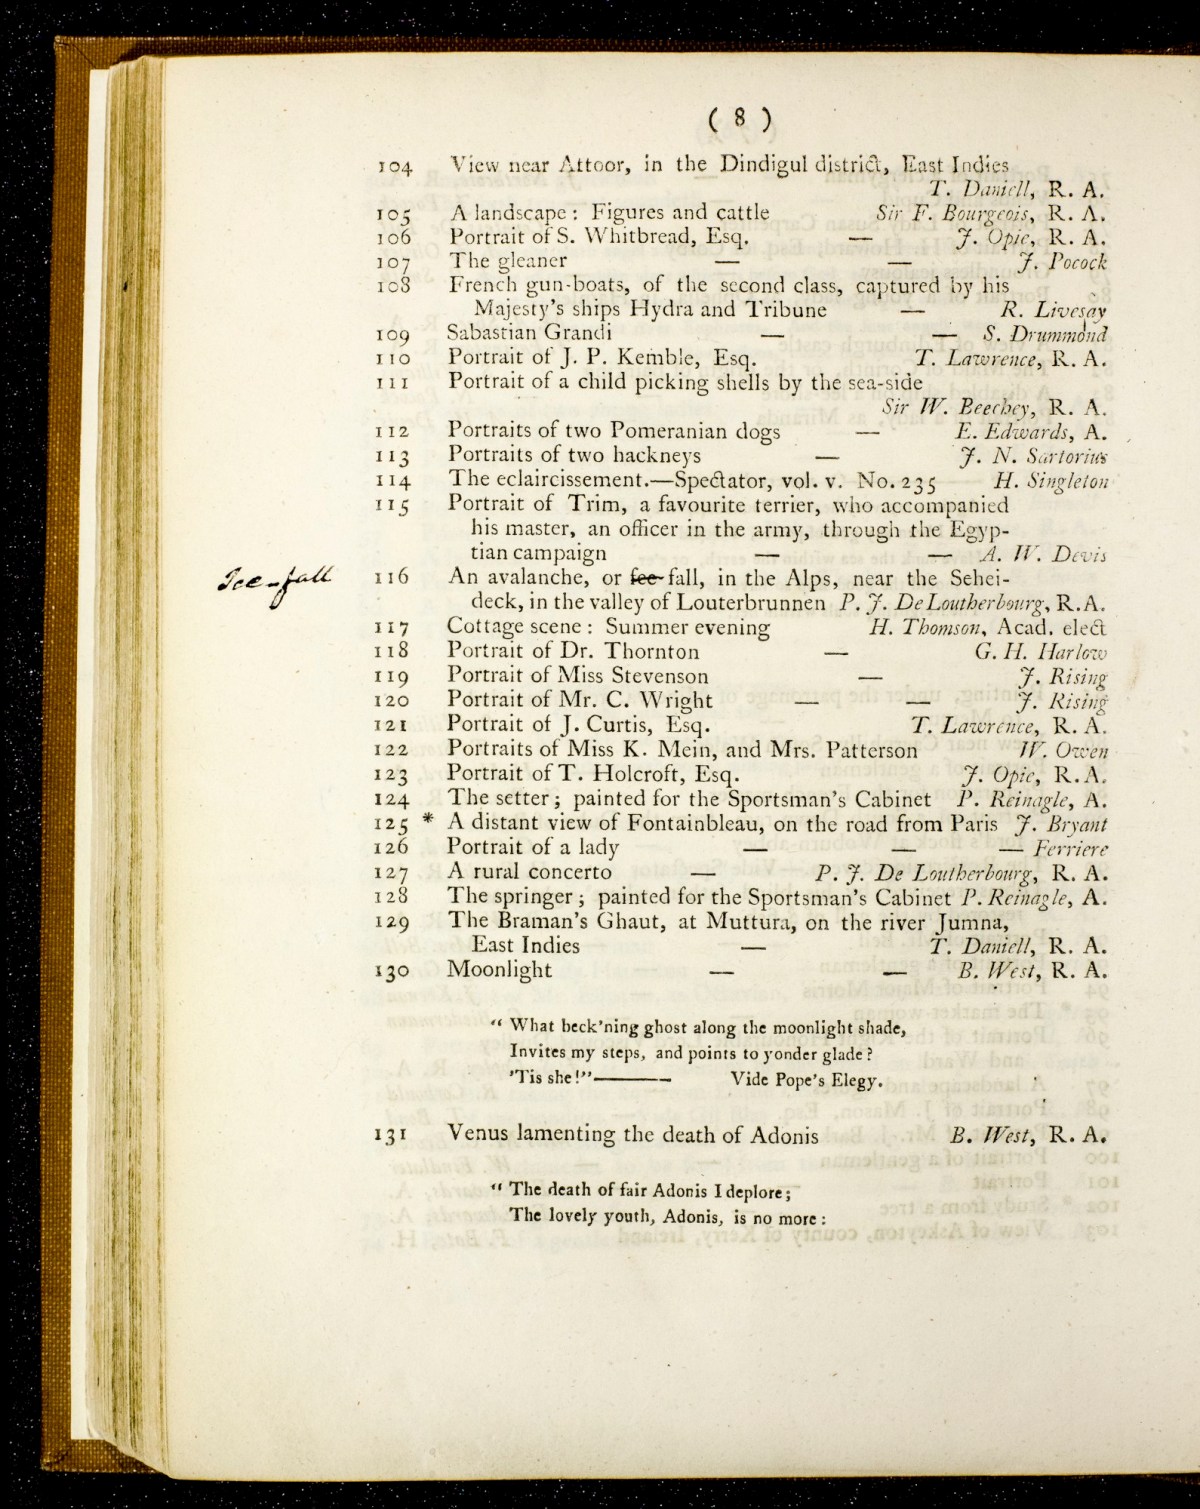 ( 8 )
104 View near Attoor, in the Dindigul district, East Indies
T. Daniell, R. A.
105 A landscape : Figures and cattle Sir F. Bourgeois, R. A.
106 Portrait of S. Whitbread, Esq. — J. Opie, R. A.
107 The gleaner — — J. Pocock
108 French gun-boats, of the second class, captured by his
Majesty's ships Hydra and Tribune — R. Livesay
109 Sabastian Grandi — — S. Drummond
110 Portrait of J. P. Kemble, Esq. T. Lawrence, R. A.
111 Portrait of a child picking shells by the sea-side
Sir W. Beechey, R. A.
112 Portraits of two Pomeranian dogs — E. Edwards, A.
113 Portraits of two hackneys — J. N. Sartorius
114 The eclaircissement.—Spectator, vol. v. No. 235 H. Singleton
115 Portrait of Trim, a favourite terrier, who accompanied
his master, an officer in the army, through the Egyp-
tian campaign — — A. W. Devis
Ice-fall 116 An avalanche, or fee-fall, in the Alps, near the Schei-
deck, in the valley of Louterbrunnen P. J. De Loutherbourg, R.A.
117 Cottage scene : Summer evening H. Thomson, Acad. elect
118 Portrait of Dr. Thornton — G. H. Harlow
119 Portrait of Miss Stevenson — J. Rising
120 Portrait of Mr. C. Wright — — J. Rising
121 Portrait of J. Curtis, Esq. T. Lawrence, R. A.
122 Portraits of Miss K. Mein, and Mrs. Patterson W. Owen
123 Portrait of T. Holcroft, Esq. J. Opie, R.A.
124 The setter ; painted for the Sportsman's Cabinet P. Reinagle, A.
125 * A distant view of Fontainbleau, on the road from Paris J. Bryant
126 Portrait of a lady — — — Ferriere
127 A rural concerto — P. J. De Loutherbourg, R. A.
128 The springer ; painted for the Sportsman's Cabinet P. Reinagle, A.
129 The Braman's Ghaut, at Muttura, on the river Jumna,
East Indies — T. Daniell, R. A.
130 Moonlight — — B. West, R. A.
“ What beck'ning ghost along the moonlight shade,
Invites my steps, and points to yonder glade ?
'Tis she !”——— Vide Pope's Elegy.
131 Venus lamenting the death of Adonis B. West, R. A.
“ The death of fair Adonis I deplore ;
The lovely youth, Adonis, is no more :